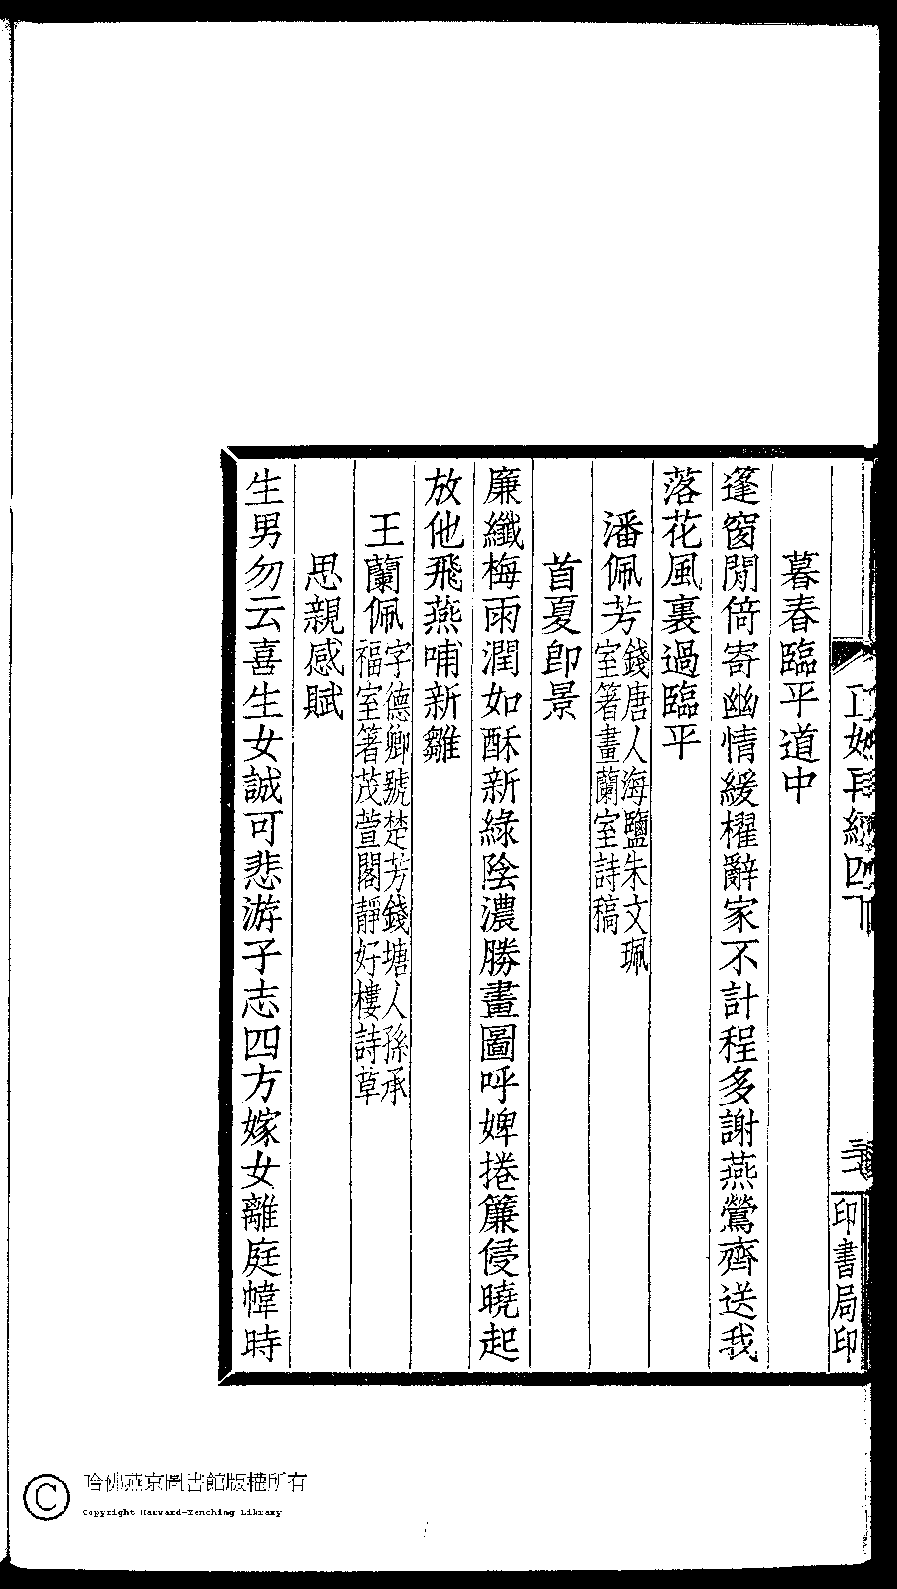 暮春臨平道中
篷窗閒倚寄幽情緩櫂辭家不計程多謝燕鶯齊送我
落花風裏過臨平
潘佩芳錢唐人海鹽朱文珮
室箸畫蘭室詩稿
首夏卽景
廉纖梅雨潤如酥新綠陰濃勝畫圖呼婢捲簾侵曉起
放他飛燕哺新雛
王蘭佩字德卿號楚芳錢塘人孫承
福室箸茂萱閣靜好樓詩草
思親感賦
生男勿云喜生女誠可悲游子志四方嫁女離庭幃時
印書局印
哈佛燕京圖書館版權所有
Copyright Harvard-Yenching Library